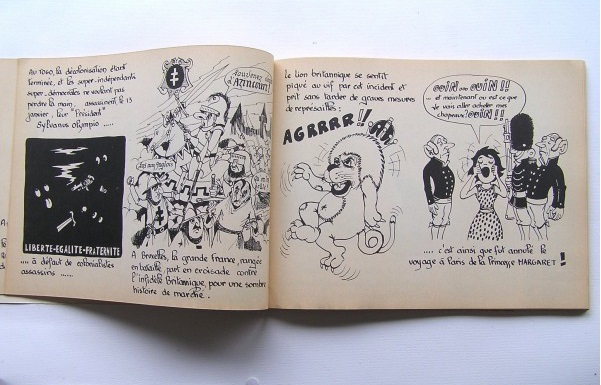 Au TOGO, la décolonisation étant
terminée, et les super-indépendants
super-démocrates ne voulant pas
perdre la main, assassinent le 13
janvier, leur "Président"
Sylvanus Olympio .....
LIBERTE-EGALITE-FRATERNITE
.... à défaut de colonialistes
assassins .....
Souvenez vous
AZINCOURT!
A Bruxelles, la grande France, rangée
en bataille, part en croisade contre
l'infidèle Britannique, pour une sombre
histoire de marché.
Le lion britannique se sentit
piqué au vif par cet incident et
prit sans tarder de graves mesures
de représailles:
AGRRRR!!
OUIN.... OUIN!!
... et maintenant où est ce que
je vais aller acheter mes
chapeaux? OUIN!!
.... c'est ainsi que fut annulé le
voyage à Paris de la Princesse MARGARET!